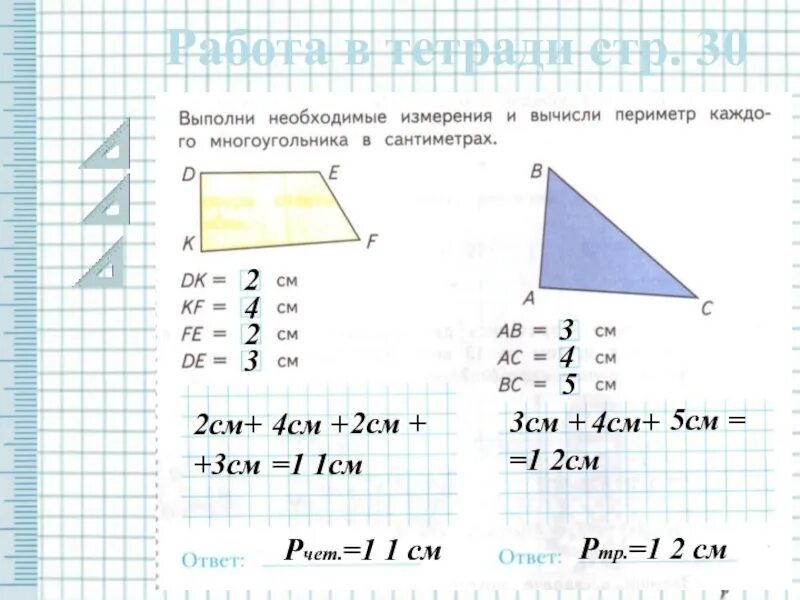 Работа в тетради стр. 30
Выполни необходимые измерения и вычисли периметр каждо-
го многоугольника в сантиметрах.
D E
K F
DK = 2 см
KF = 4 см
FE = 2 см
DE = 3 см
2см+ 4см +2см +
+3см =1 1см
Ответ: Рчет.=1 1 см
B
A C
AB = 3 см
AC = 4 см
BC = 5 см
3см + 4см+ 5см =
=1 2см
Ответ: Ртр.=1 2 см